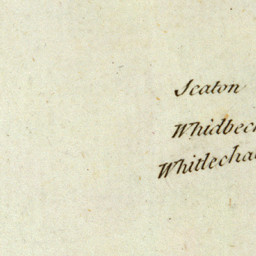 Scaton
Whidbec
Whitlecha